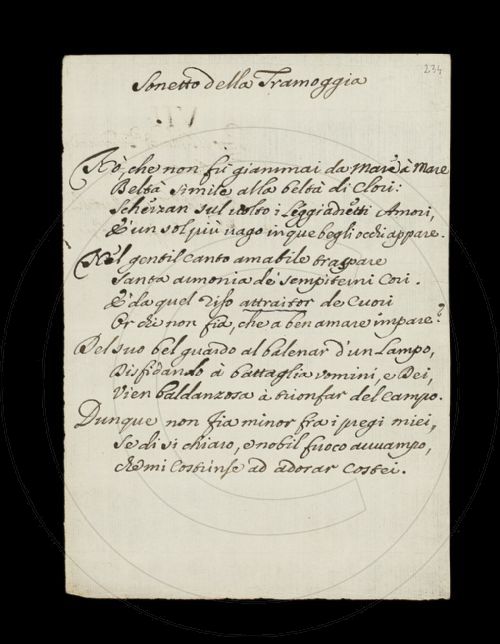 234
Sonetto della Tramoggia
Nò, che non fù giammai da Mare à Mare
Beltà simile alla beltà di Clori:
Scherzan sul volto i Leggiadretti Amori,
E un sol più vago in que begli occhi appare.
Nel gentil Canto amabile traspare
Santa armonia de sempiterni Cori.
E da quel riso attraitor de Cuori
Or chi non fia, che a ben amare impare?
Del suo bel guardo al balenar d'un Lampo,
Disfidando à battaglia uomini, e Dei,
Vien baldanzosa à trionfar del Campo.
Dunque non fia minor fra i pregi miei,
Se di sì chiaro, e nobil fuoco avvampo,
che mi Costrinse ad adorar Costei.